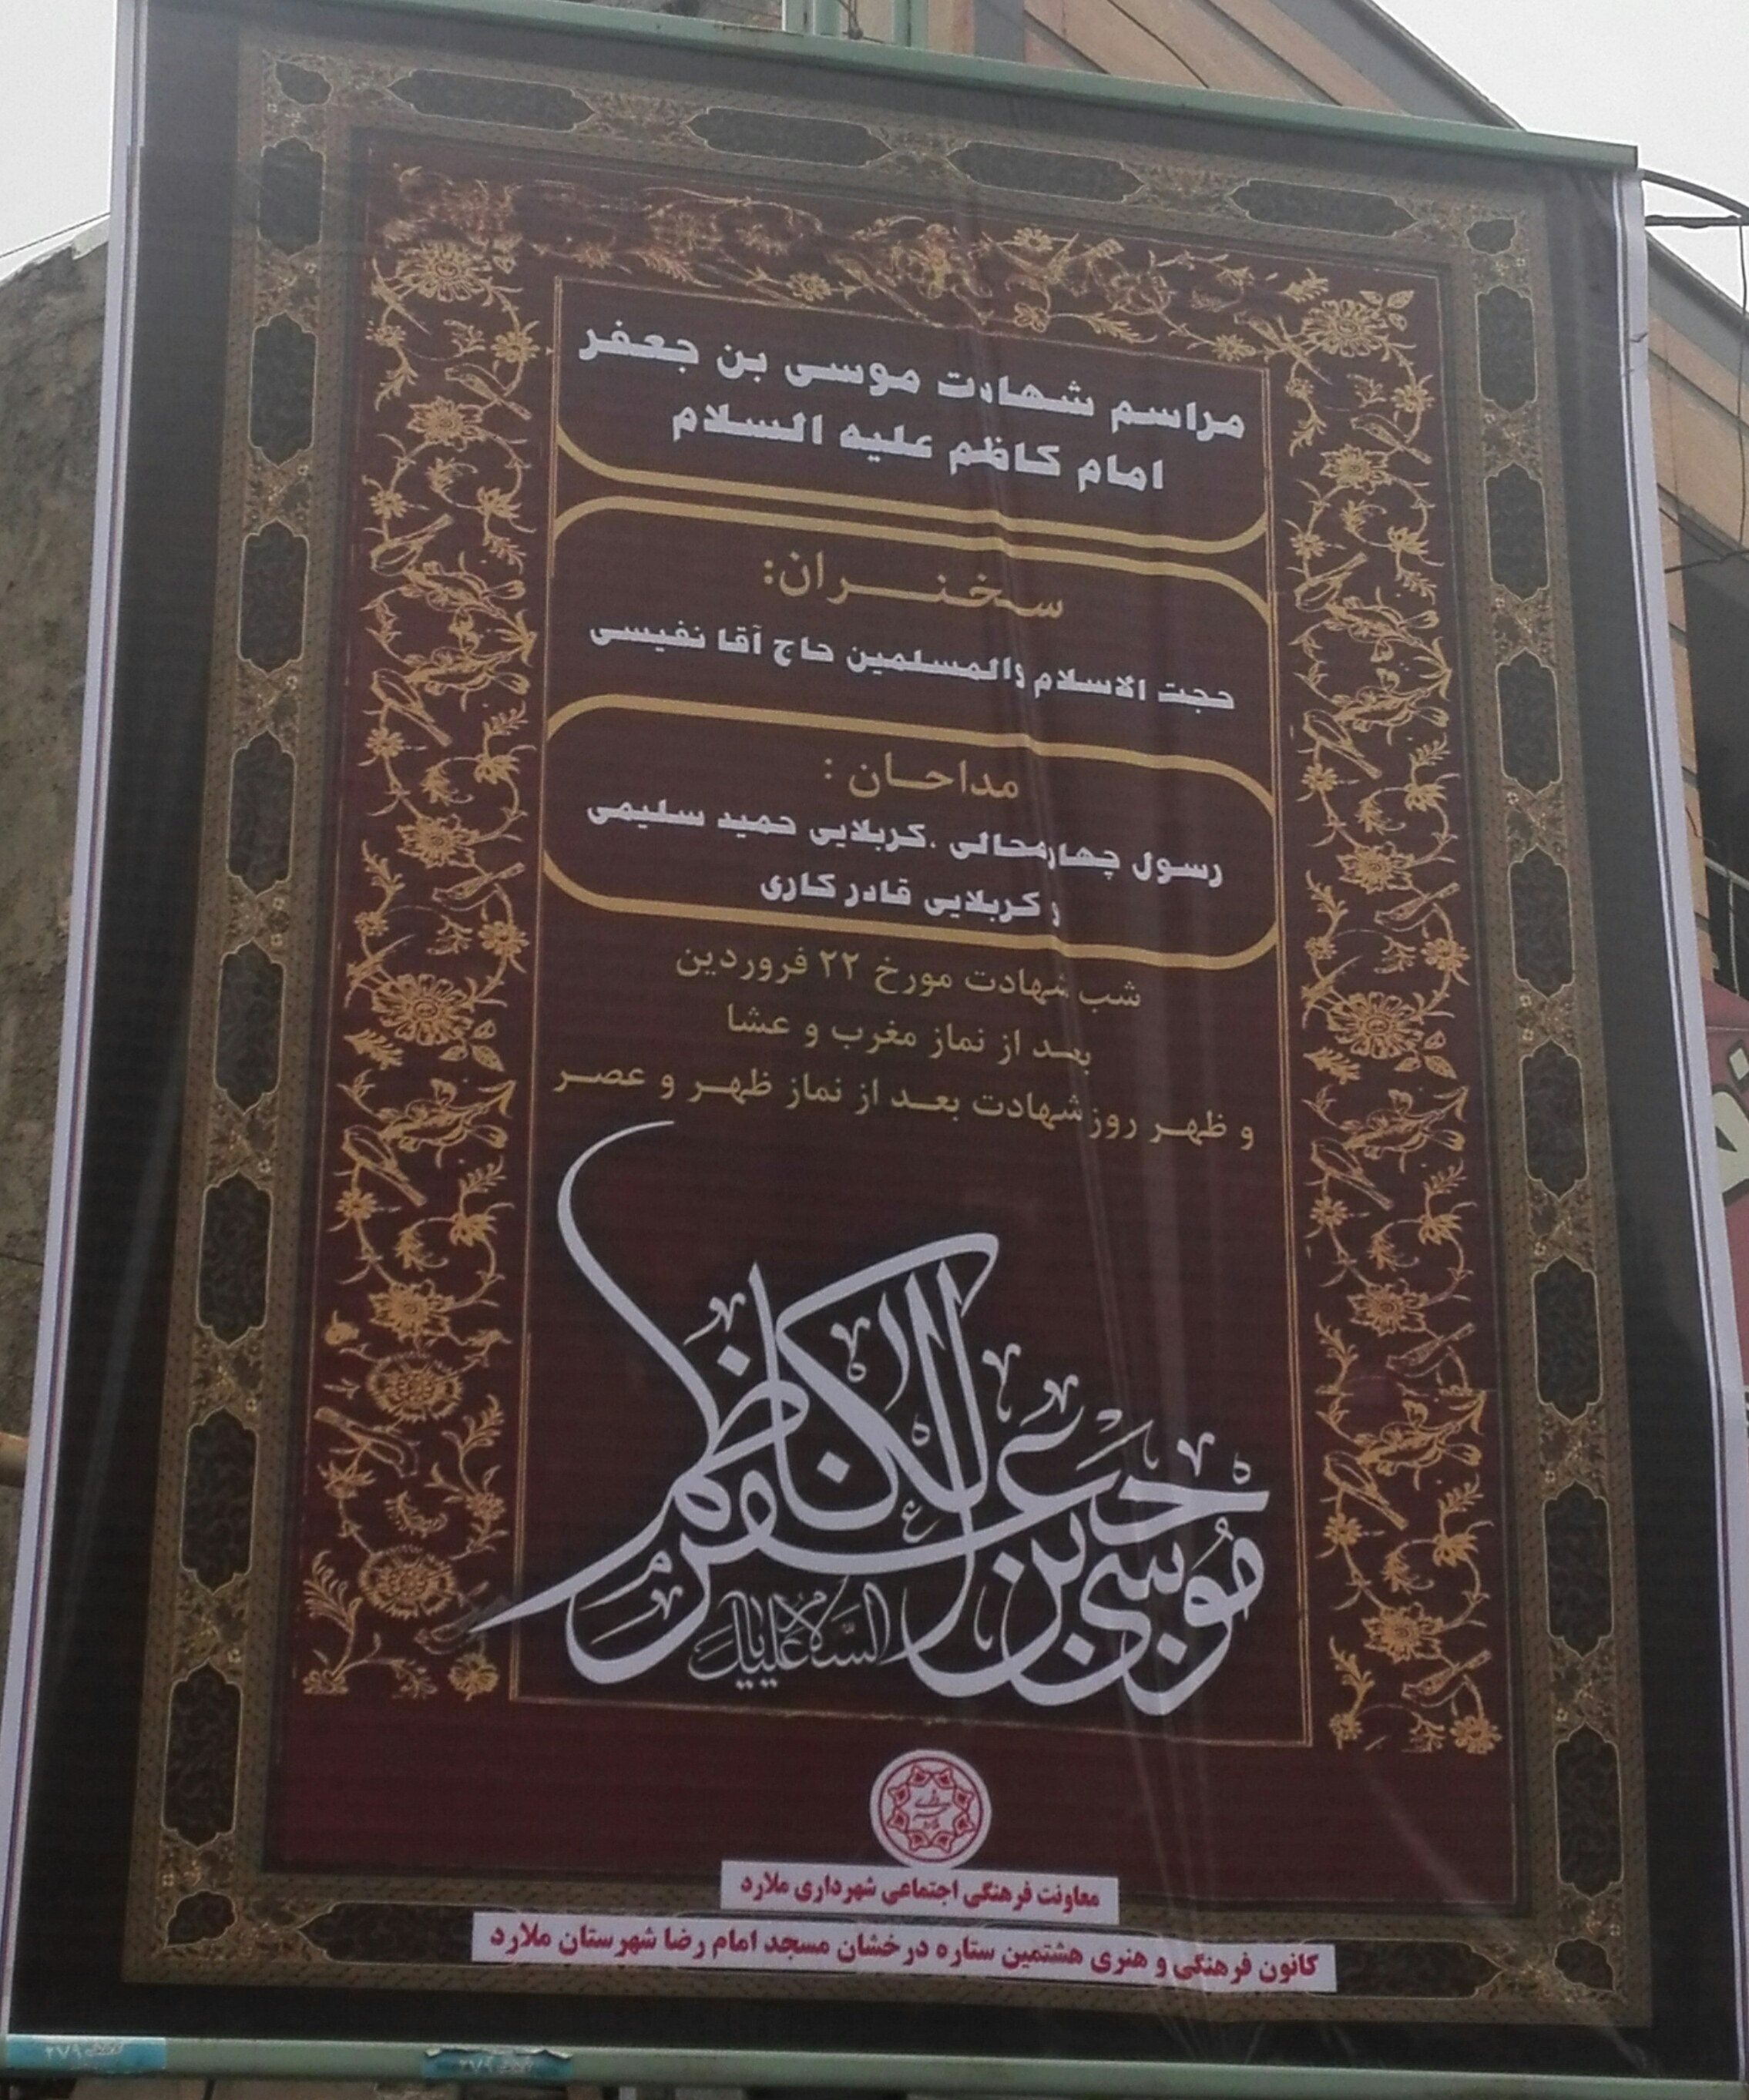 مراسم شهادت موسی بن جعفر
امام کاظم علیه السلام
سخنران:
حجت الاسلام والمسلمین حاج آقا نفیسی
مداحان :
رسول چهارمحالی ،کربلایی حمید سلیمی
و کربلایی قادر کاری
شب شهادت مورخ ۲۲ فروردین
بعد از نماز مغرب و عشا
و ظهر روز شهادت بعد از نماز ظهر و عصر
موسی بن جعفر الکاظم
السلام علیک
معاونت فرهنگی اجتماعی شهرداری ملارد
کانون فرهنگی و هنری هشتمین ستاره درخشان مسجد امام رضا شهرستان ملارد